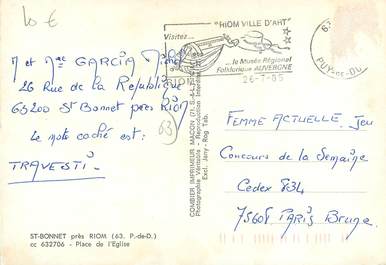 10 €
"RIOM VILLE D'ART"
Visitez...
...le Musée Régional
Folklorique AUVERGNE
26-7-85
RIOM
63
PUY-DE-DÔME
M et Mme GARCIA Michel
26 Rue de la République
63200 St Bonnet près Riom
63
Le mot caché est:
TRAVESTI
COMBIER IMPRIMEUR MACON (71, S.-&-L.)
Photographie Véritable - Reproduction Interdite
Excl. Jany - Rog Tab.
FEMME ACTUELLE. Jeu
Concours de la Semaine
Cedex 834
75608 PARIS Brune
ST-BONNET près RIOM (63. P.-de-D.)
cc 632706 - Place de l'Eglise